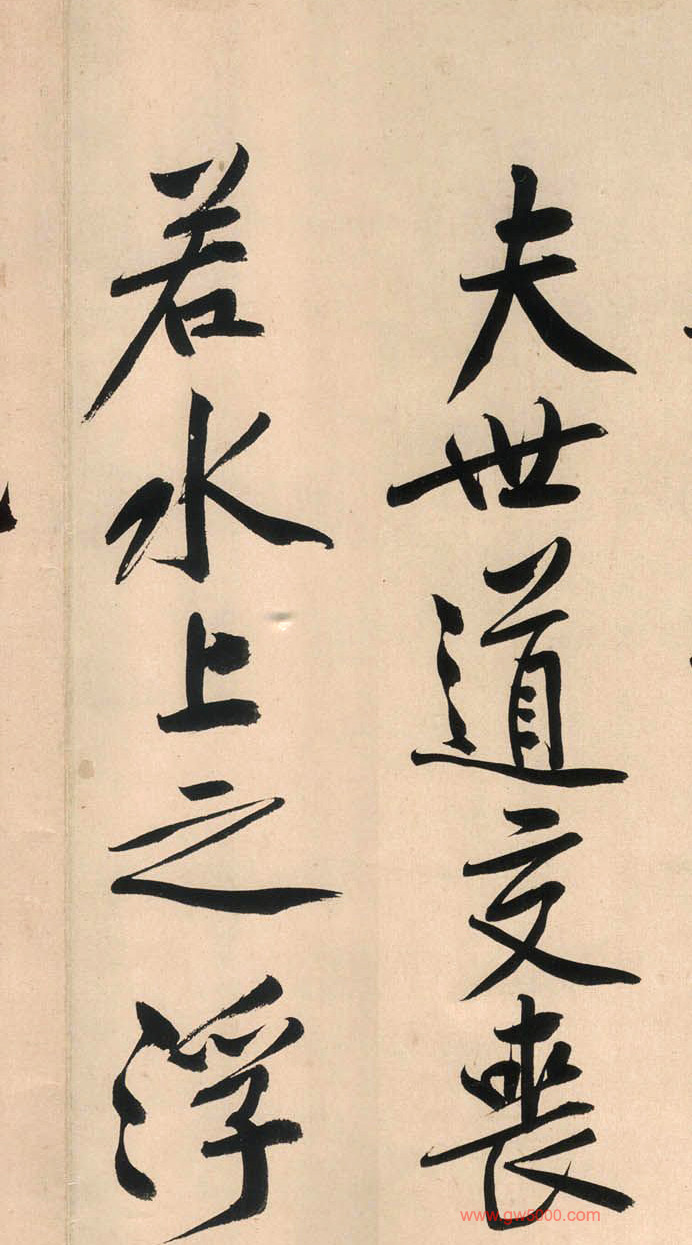 夫世道交喪
若水上之浮
www.gw5000.com